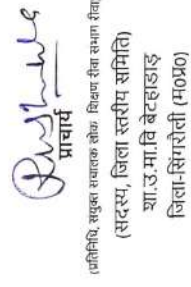 प्राचार्य
(प्रतिनिधि, संयुक्त संचालक लोक शिक्षण रीवा संभाग रीवा)
(सदस्य, जिला स्तरीय समिति)
शा.उ.मा.वि बेटहाडाड़
जिला-सिंगरौली (म०प्र०)